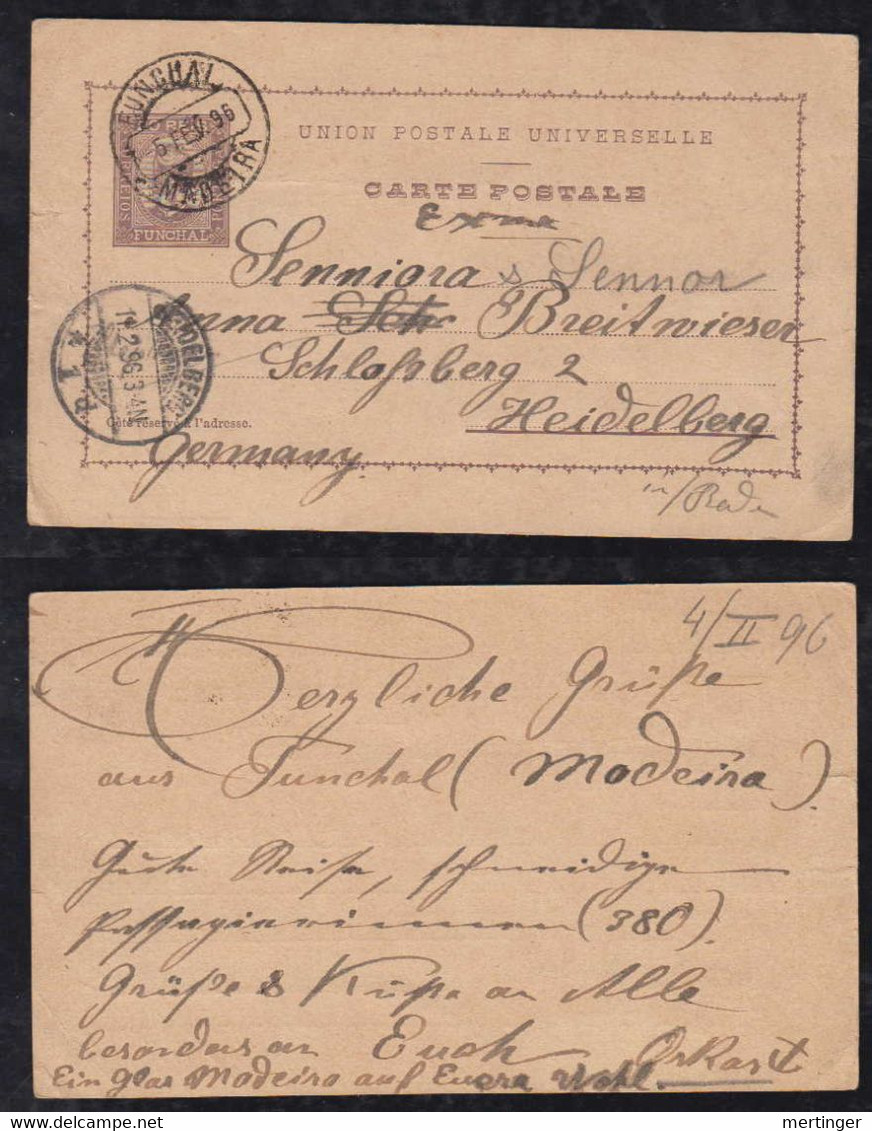 FUNCHAL
5 FEV. 96
MADEIRA
FUNCHAL
UNION POSTALE UNIVERSELLE
CARTE POSTALE
Exma
Senniora & Sennor
Anna Sch Breitwieser
Schloßberg 2
Heidelberg
Germany
in/Baden
Côté réservé à l'adresse.
HEIDELBERG
11.2.96.3-4N
* 1 *
4/II 96
Herzliche Grüße
aus Funchal (Madeira).
Gute Reise, schneidige
Passagierinnen (380).
Grüße & Küße an Alle
besonders an Euch Oskar
Ein Glas Madeira auf Euera Wohl.
mertinger